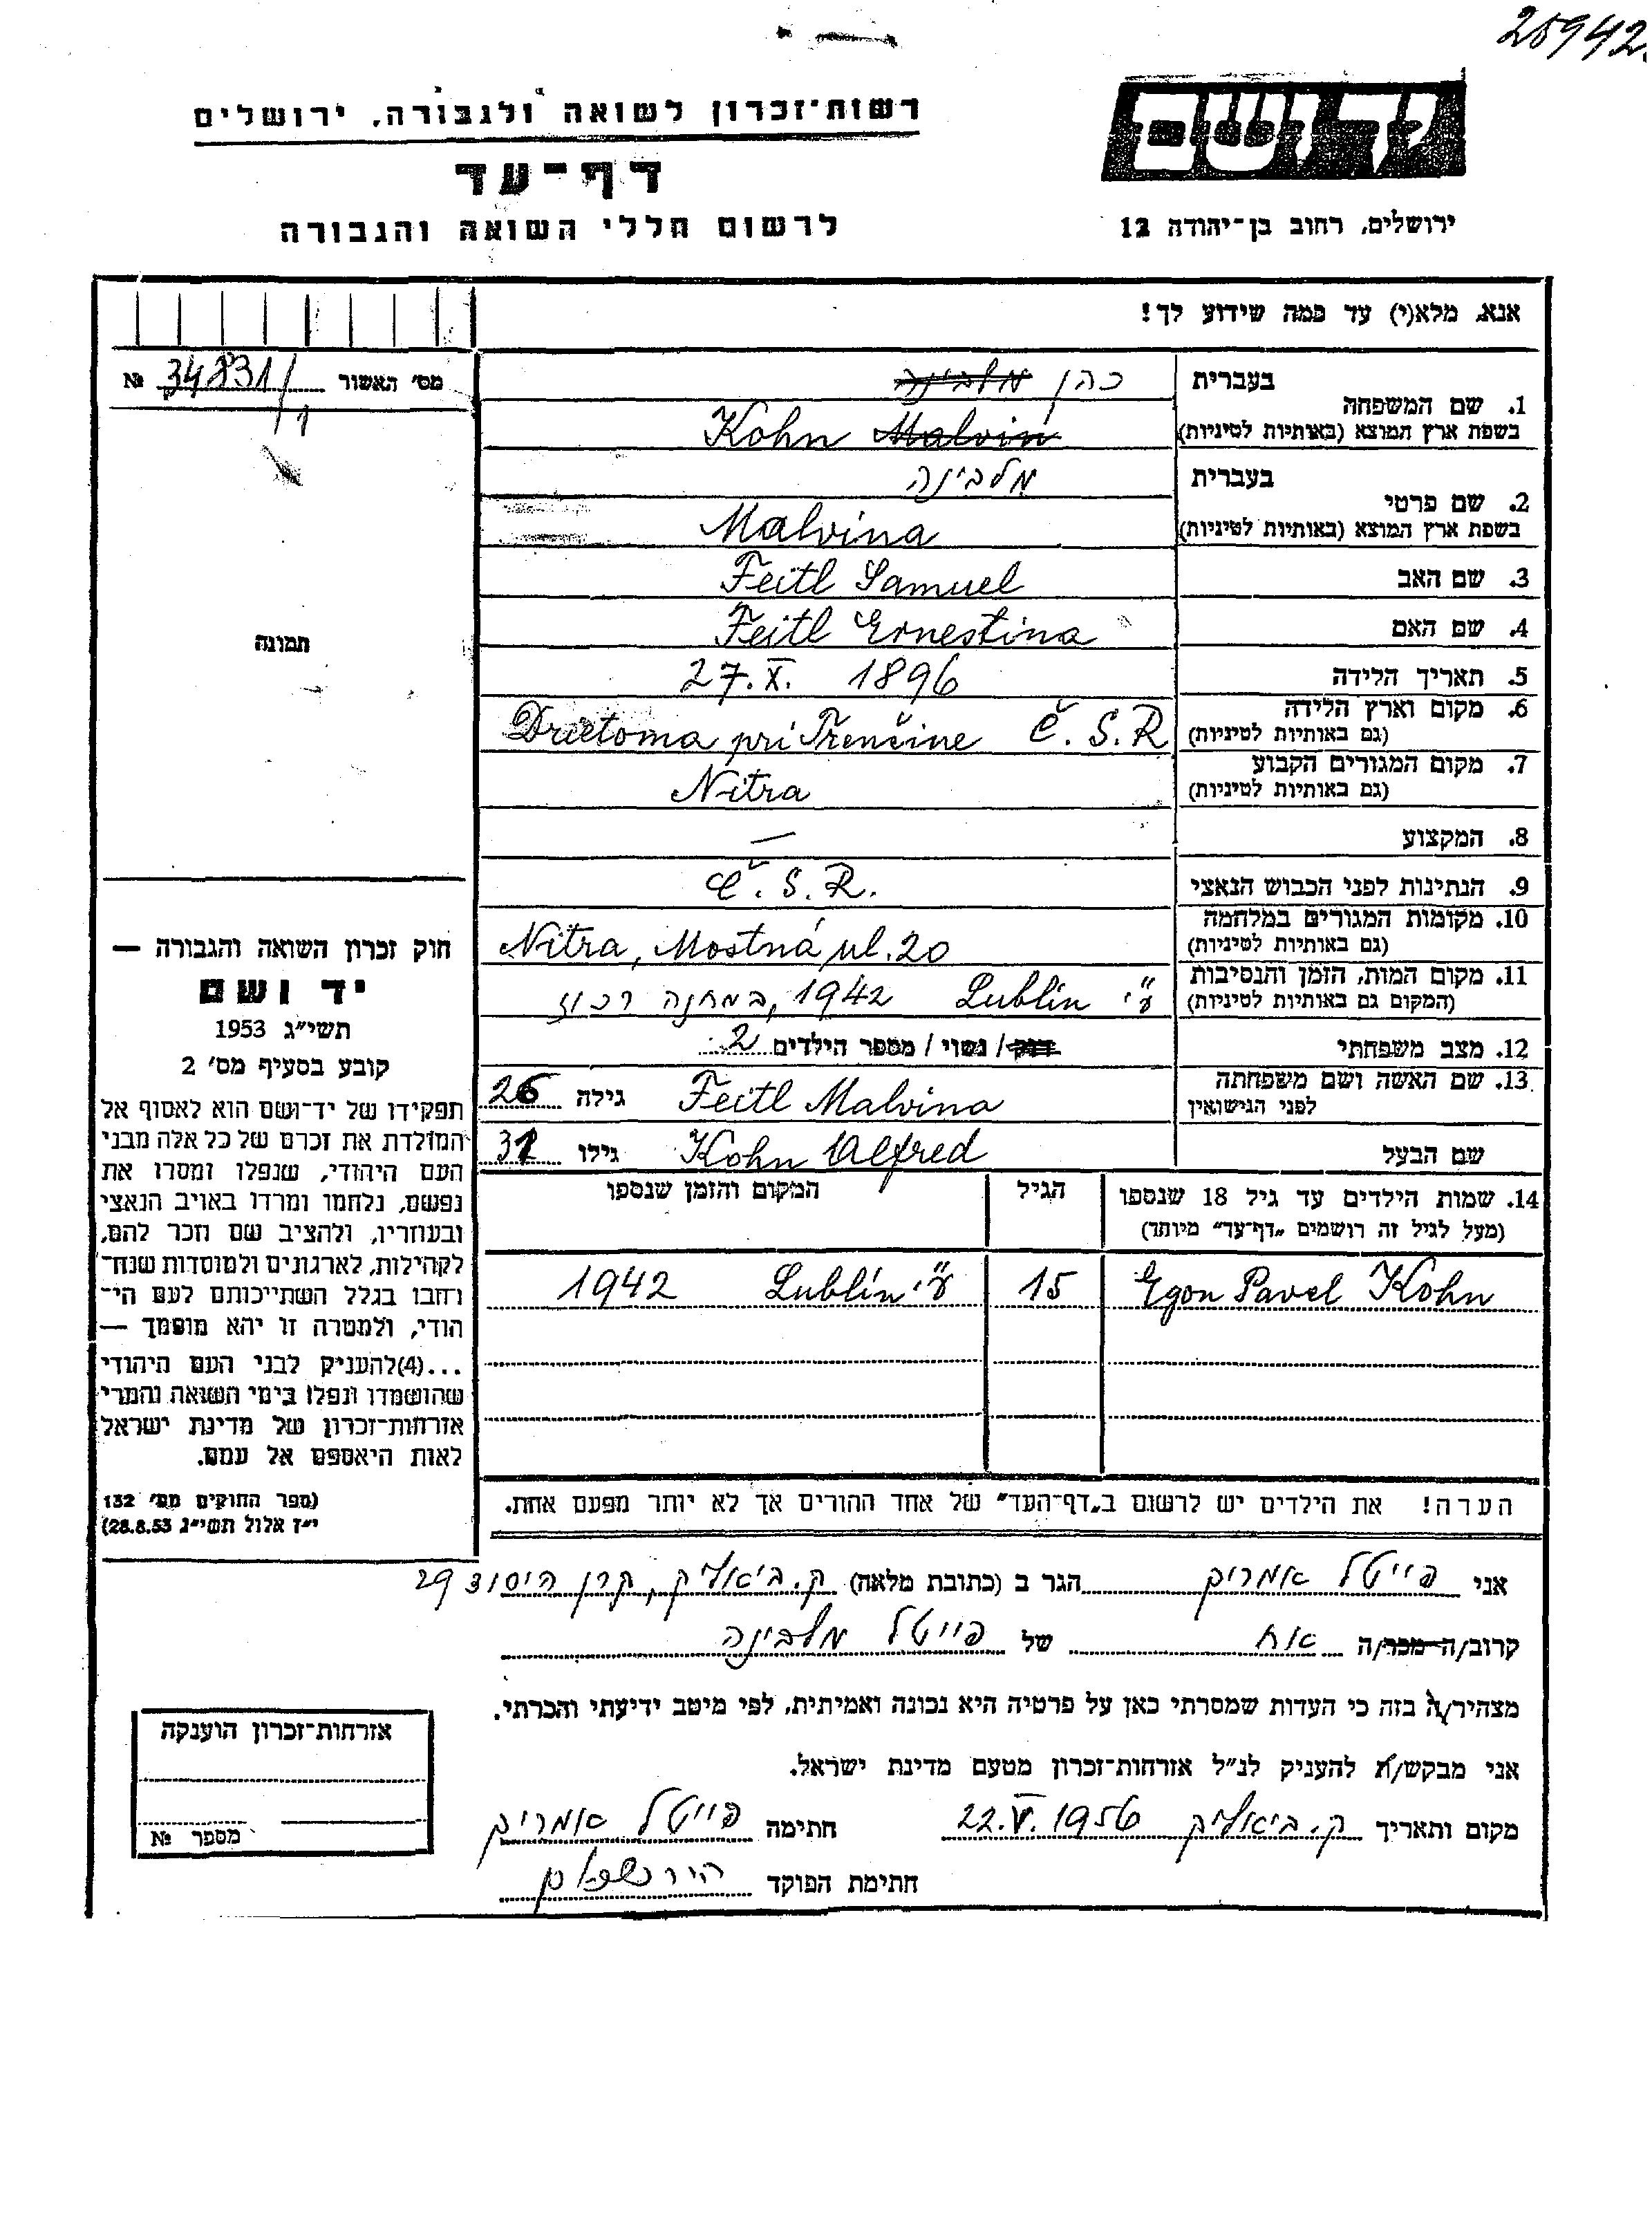 20942.
רשות־זכרון לשואה ולגבורה, ירושלים
דף־עד
לרשום חללי השואה והגבורה
יד ושם
ירושלים, רחוב בן־יהודה 12
אנא, מלא(י) עד כמה שידוע לך!
מס׳ האשור 34831/1 №
1. שם המשפחה
בעברית כהן מלבינה
בשפת ארץ המוצא (באותיות לטיניות) Kohn Malvin
2. שם פרטי
בעברית מלבינה
בשפת ארץ המוצא (באותיות לטיניות) Malvina
3. שם האב Feitl Samuel
4. שם האם Feitl Ernestina
5. תאריך הלידה 27.X. 1896
6. מקום וארץ הלידה
(גם באותיות לטיניות) Drietoma pri Trenčine Č.S.R
7. מקום המגורים הקבוע
(גם באותיות לטיניות) Nitra
8. המקצוע —
9. הנתינות לפני הכבוש הנאצי Č.S.R.
10. מקומות המגורים במלחמה
(גם באותיות לטיניות) Nitra, Mostná ul. 20
11. מקום המות, הזמן והנסיבות
(המקום גם באותיות לטיניות) ע"י Lublin 1942, במחנה רכוז
12. מצב משפחתי רווק / נשוי / מספר הילדים 2
13. שם האשה ושם משפחתה
לפני הנישואין Feitl Malvina גילה 26
שם הבעל Kohn Alfred גילו 31
14. שמות הילדים עד גיל 18 שנספו הגיל המקום והזמן שנספו
(מעל לגיל זה רושמים „דף־עד" מיוחד)
Egon Pavel Kohn 15 ע"י Lublin 1942
הערה! את הילדים יש לרשום ב„דף־העד" של אחד ההורים אך לא יותר מפעם אחת.
תמונה
חוק זכרון השואה והגבורה —
יד ושם
תשי״ג 1953
קובע בסעיף מס׳ 2
תפקידו של יד־ושם הוא לאסוף אל
המולדת את זכרם של כל אלה מבני
העם היהודי, שנפלו ומסרו את
נפשם, נלחמו ומרדו באויב הנאצי
ובעוזריו, ולהציב שם וזכר להם,
לקהילות, לארגונים ולמוסדות שנח־
רחבו בגלל השתייכותם לעם הי־
הודי, ולמטרה זו יהא מוסמך —
...(4)להעניק לבני העם היהודי
שהושמדו ונפלו בימי השואה והמרי
אזרחות־זכרון של מדינת ישראל
לאות היאספם אל עמם.
(ספר החוקים מס׳ 132
י״ז אלול תשי״ג 28.8.53)
אני פייטל אפרים הגר ב (כתובת מלאה) ק. ביאליק, קרן היסוד 29
קרוב/ה מכר/ה אח של פייטל מלבינה
מצהיר/ה בזה כי העדות שמסרתי כאן על פרטיה היא נכונה ואמיתית, לפי מיטב ידיעתי והכרתי.
אני מבקש/ת להעניק לנ״ל אזרחות־זכרון מטעם מדינת ישראל.
מקום ותאריך ק. ביאליק 22.V.1956 חתימה פייטל אפרים
חתימת הפוקד
אזרחות־זכרון הוענקה
מספר №